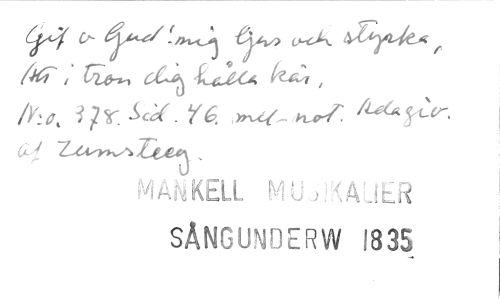 Gif o Gud! mig ljus och styrka,
Att i tron dig hålla kär,
N:o. 378. Sid. 46. med not. Adagio.
af Zumsteeg.
MANKELL MUSIKALIER
SÅNGUNDERW 1835